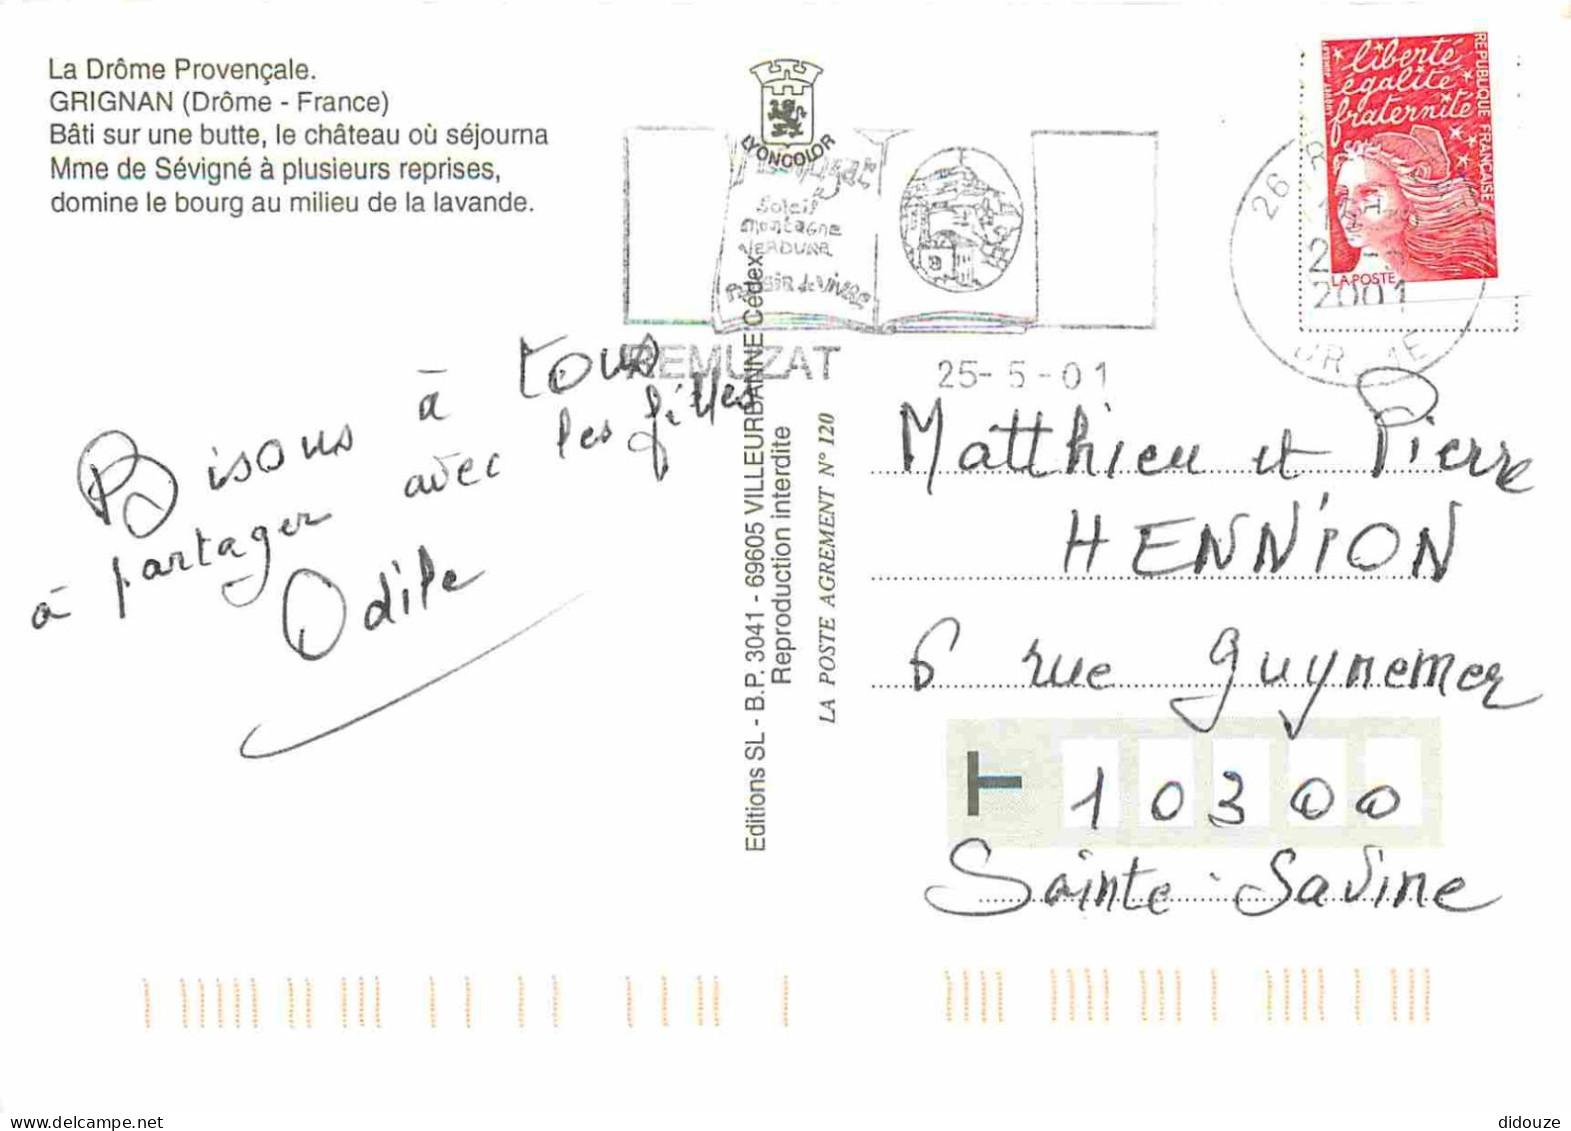 La Drôme Provençale.
GRIGNAN (Drôme - France)
Bâti sur une butte, le château où séjourna
Mme de Sévigné à plusieurs reprises,
domine le bourg au milieu de la lavande.
LYONCOLOR
Soleil
Montagne
VERDURE
Plaisir de VIVRE
REMUZAT
25-5-01
liberté
égalité
fraternité
REPUBLIQUE FRANÇAISE
LA POSTE
26
2001
Bisous à tous
à partager avec les filles
Odile
Editions SL - B.P. 3041 - 69605 VILLEURBANNE Cédex
Reproduction interdite
LA POSTE AGREMENT N° 120
Matthieu et Pierre
HENNION
6 rue guynemer
T 10300
Sainte-Savine
didouze